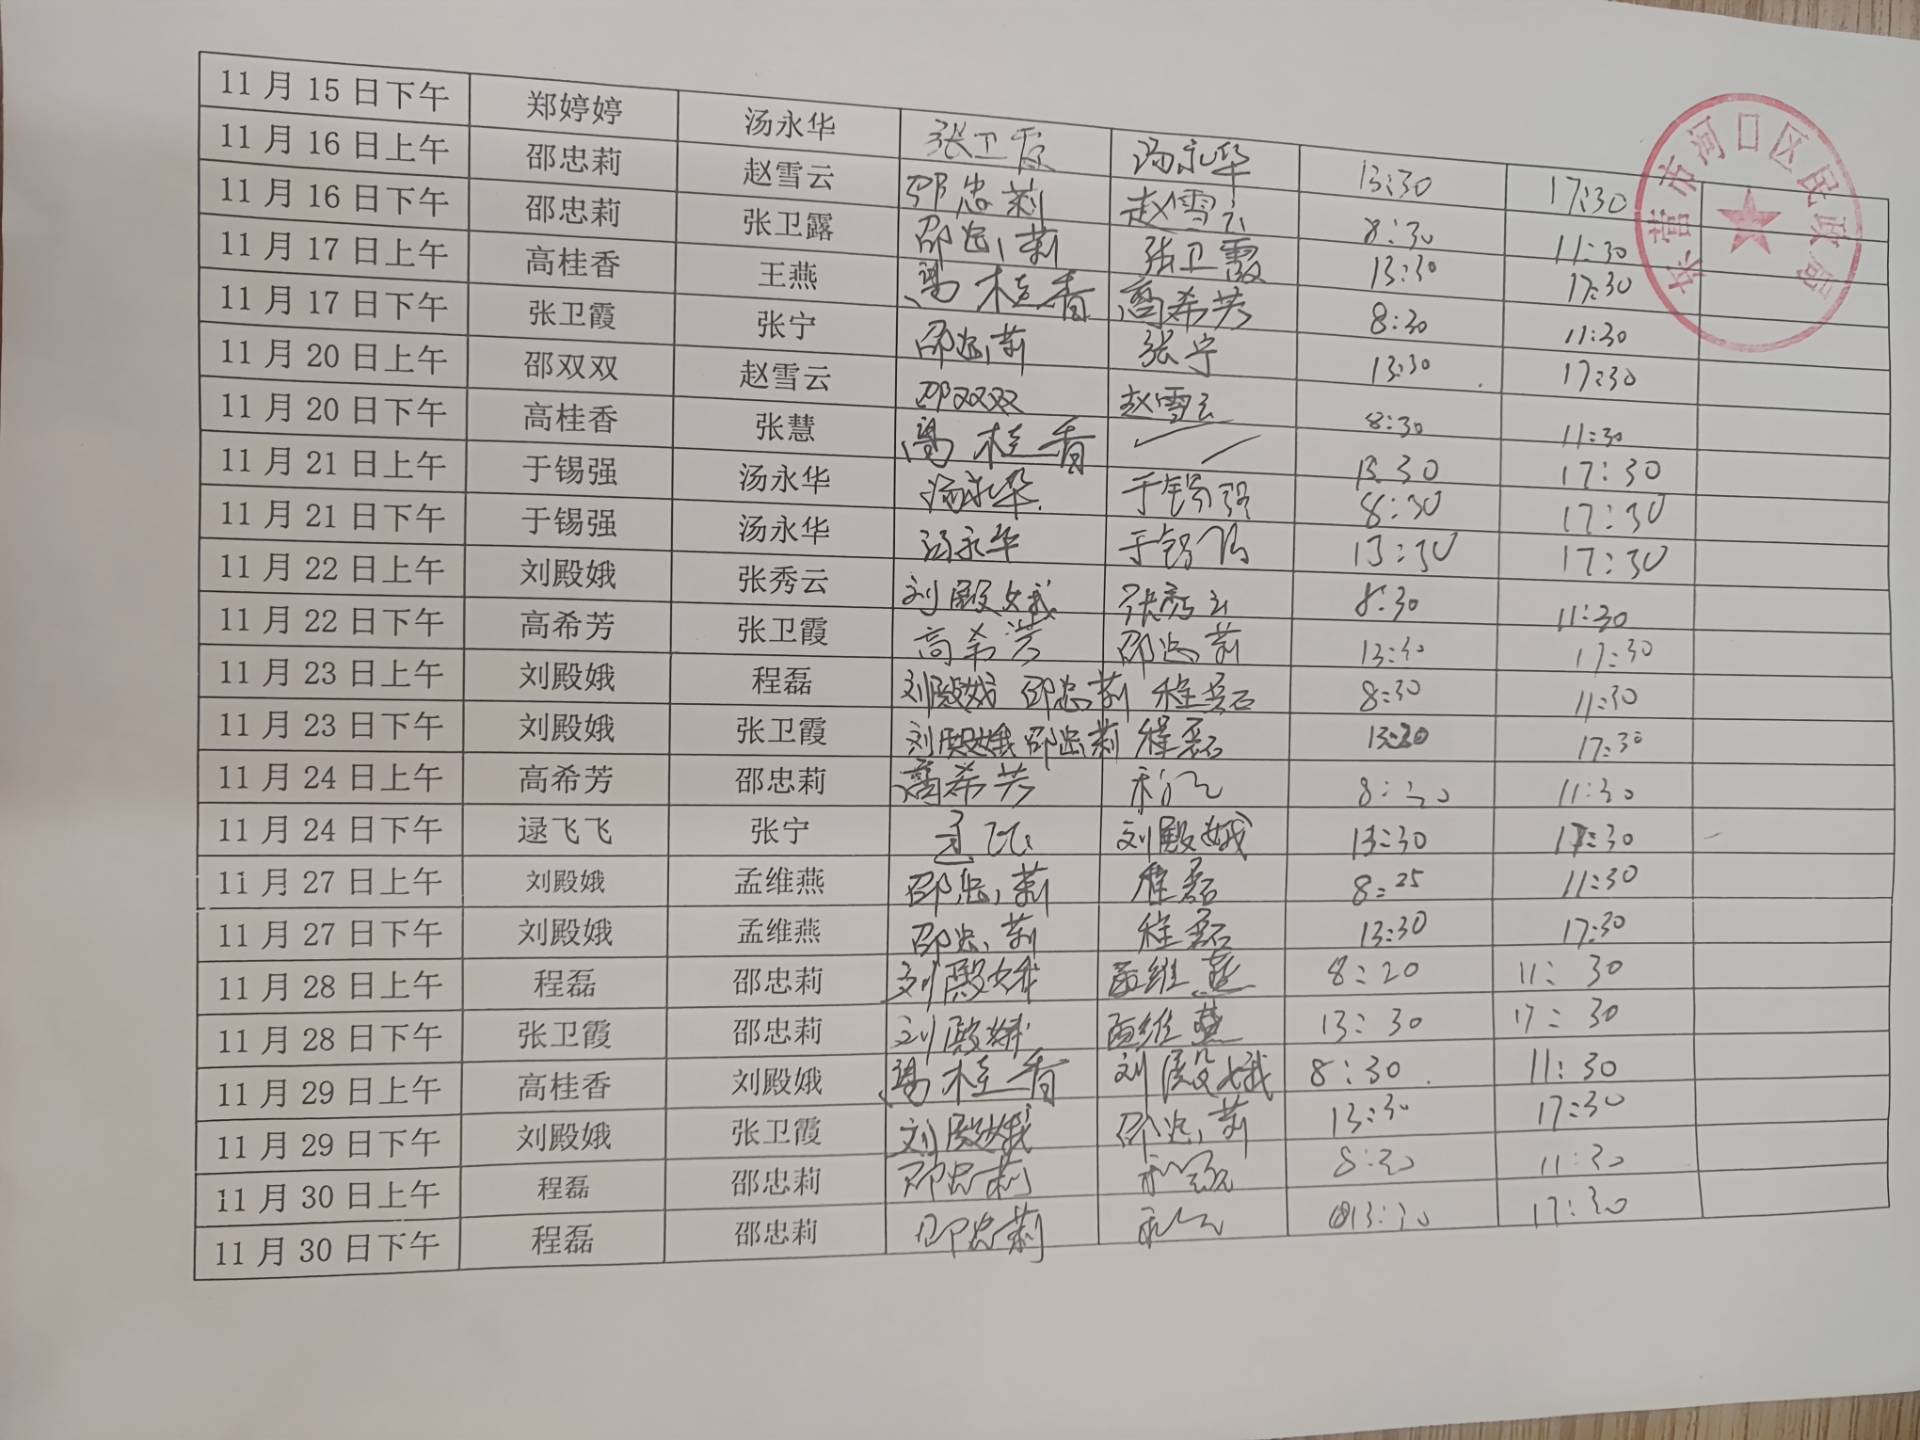 11月15日下午 郑婷婷 汤永华 张卫霞 汤永华 13:30 17:30
11月16日上午 邵忠莉 赵雪云 邵忠莉 赵雪云 8:30 11:30
11月16日下午 邵忠莉 张卫露 邵忠莉 张卫霞 13:30 17:30
11月17日上午 高桂香 王燕 高桂香 高希芳 8:30 11:30
11月17日下午 张卫霞 张宁 邵忠莉 张宁 13:30 17:30
11月20日上午 邵双双 赵雪云 邵双双 赵雪云 8:30 11:30
11月20日下午 高桂香 张慧 高桂香 13:30 17:30
11月21日上午 于锡强 汤永华 汤永华 于锡强 8:30 17:30
11月21日下午 于锡强 汤永华 汤永华 于锡强 13:30 17:30
11月22日上午 刘殿娥 张秀云 刘殿娥 张秀云 8:30 11:30
11月22日下午 高希芳 张卫霞 高希芳 邵忠莉 13:30 17:30
11月23日上午 刘殿娥 程磊 刘殿娥 邵忠莉 程磊 8:30 11:30
11月23日下午 刘殿娥 张卫霞 刘殿娥 邵忠莉 程磊 13:30 17:30
11月24日上午 高希芳 邵忠莉 高希芳 8:30 11:30
11月24日下午 逯飞飞 张宁 逯飞飞 刘殿娥 13:30 17:30
11月27日上午 刘殿娥 孟维燕 邵忠莉 程磊 8:25 11:30
11月27日下午 刘殿娥 孟维燕 邵忠莉 程磊 13:30 17:30
11月28日上午 程磊 邵忠莉 刘殿娥 孟维燕 8:20 11:30
11月28日下午 张卫霞 邵忠莉 刘殿娥 孟维燕 13:30 17:30
11月29日上午 高桂香 刘殿娥 高桂香 刘殿娥 8:30 11:30
11月29日下午 刘殿娥 张卫霞 刘殿娥 邵忠莉 13:30 17:30
11月30日上午 程磊 邵忠莉 邵忠莉 8:30 11:30
11月30日下午 程磊 邵忠莉 邵忠莉 13:30 17:30
东营市河口区民政局